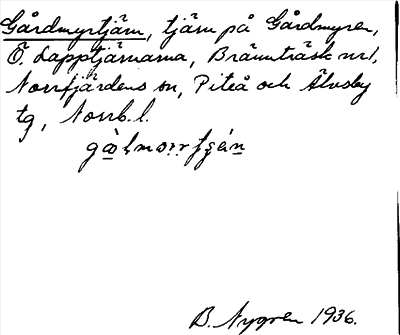 Gårdmyrtjärn, tjärn på Gårdmyren,
Ö. Lapptjärnarna, Brännträsk nr 1,
Norrfjärdens sn, Piteå och Älvsby
tg, Norrb. l.
B. Nygren 1936.